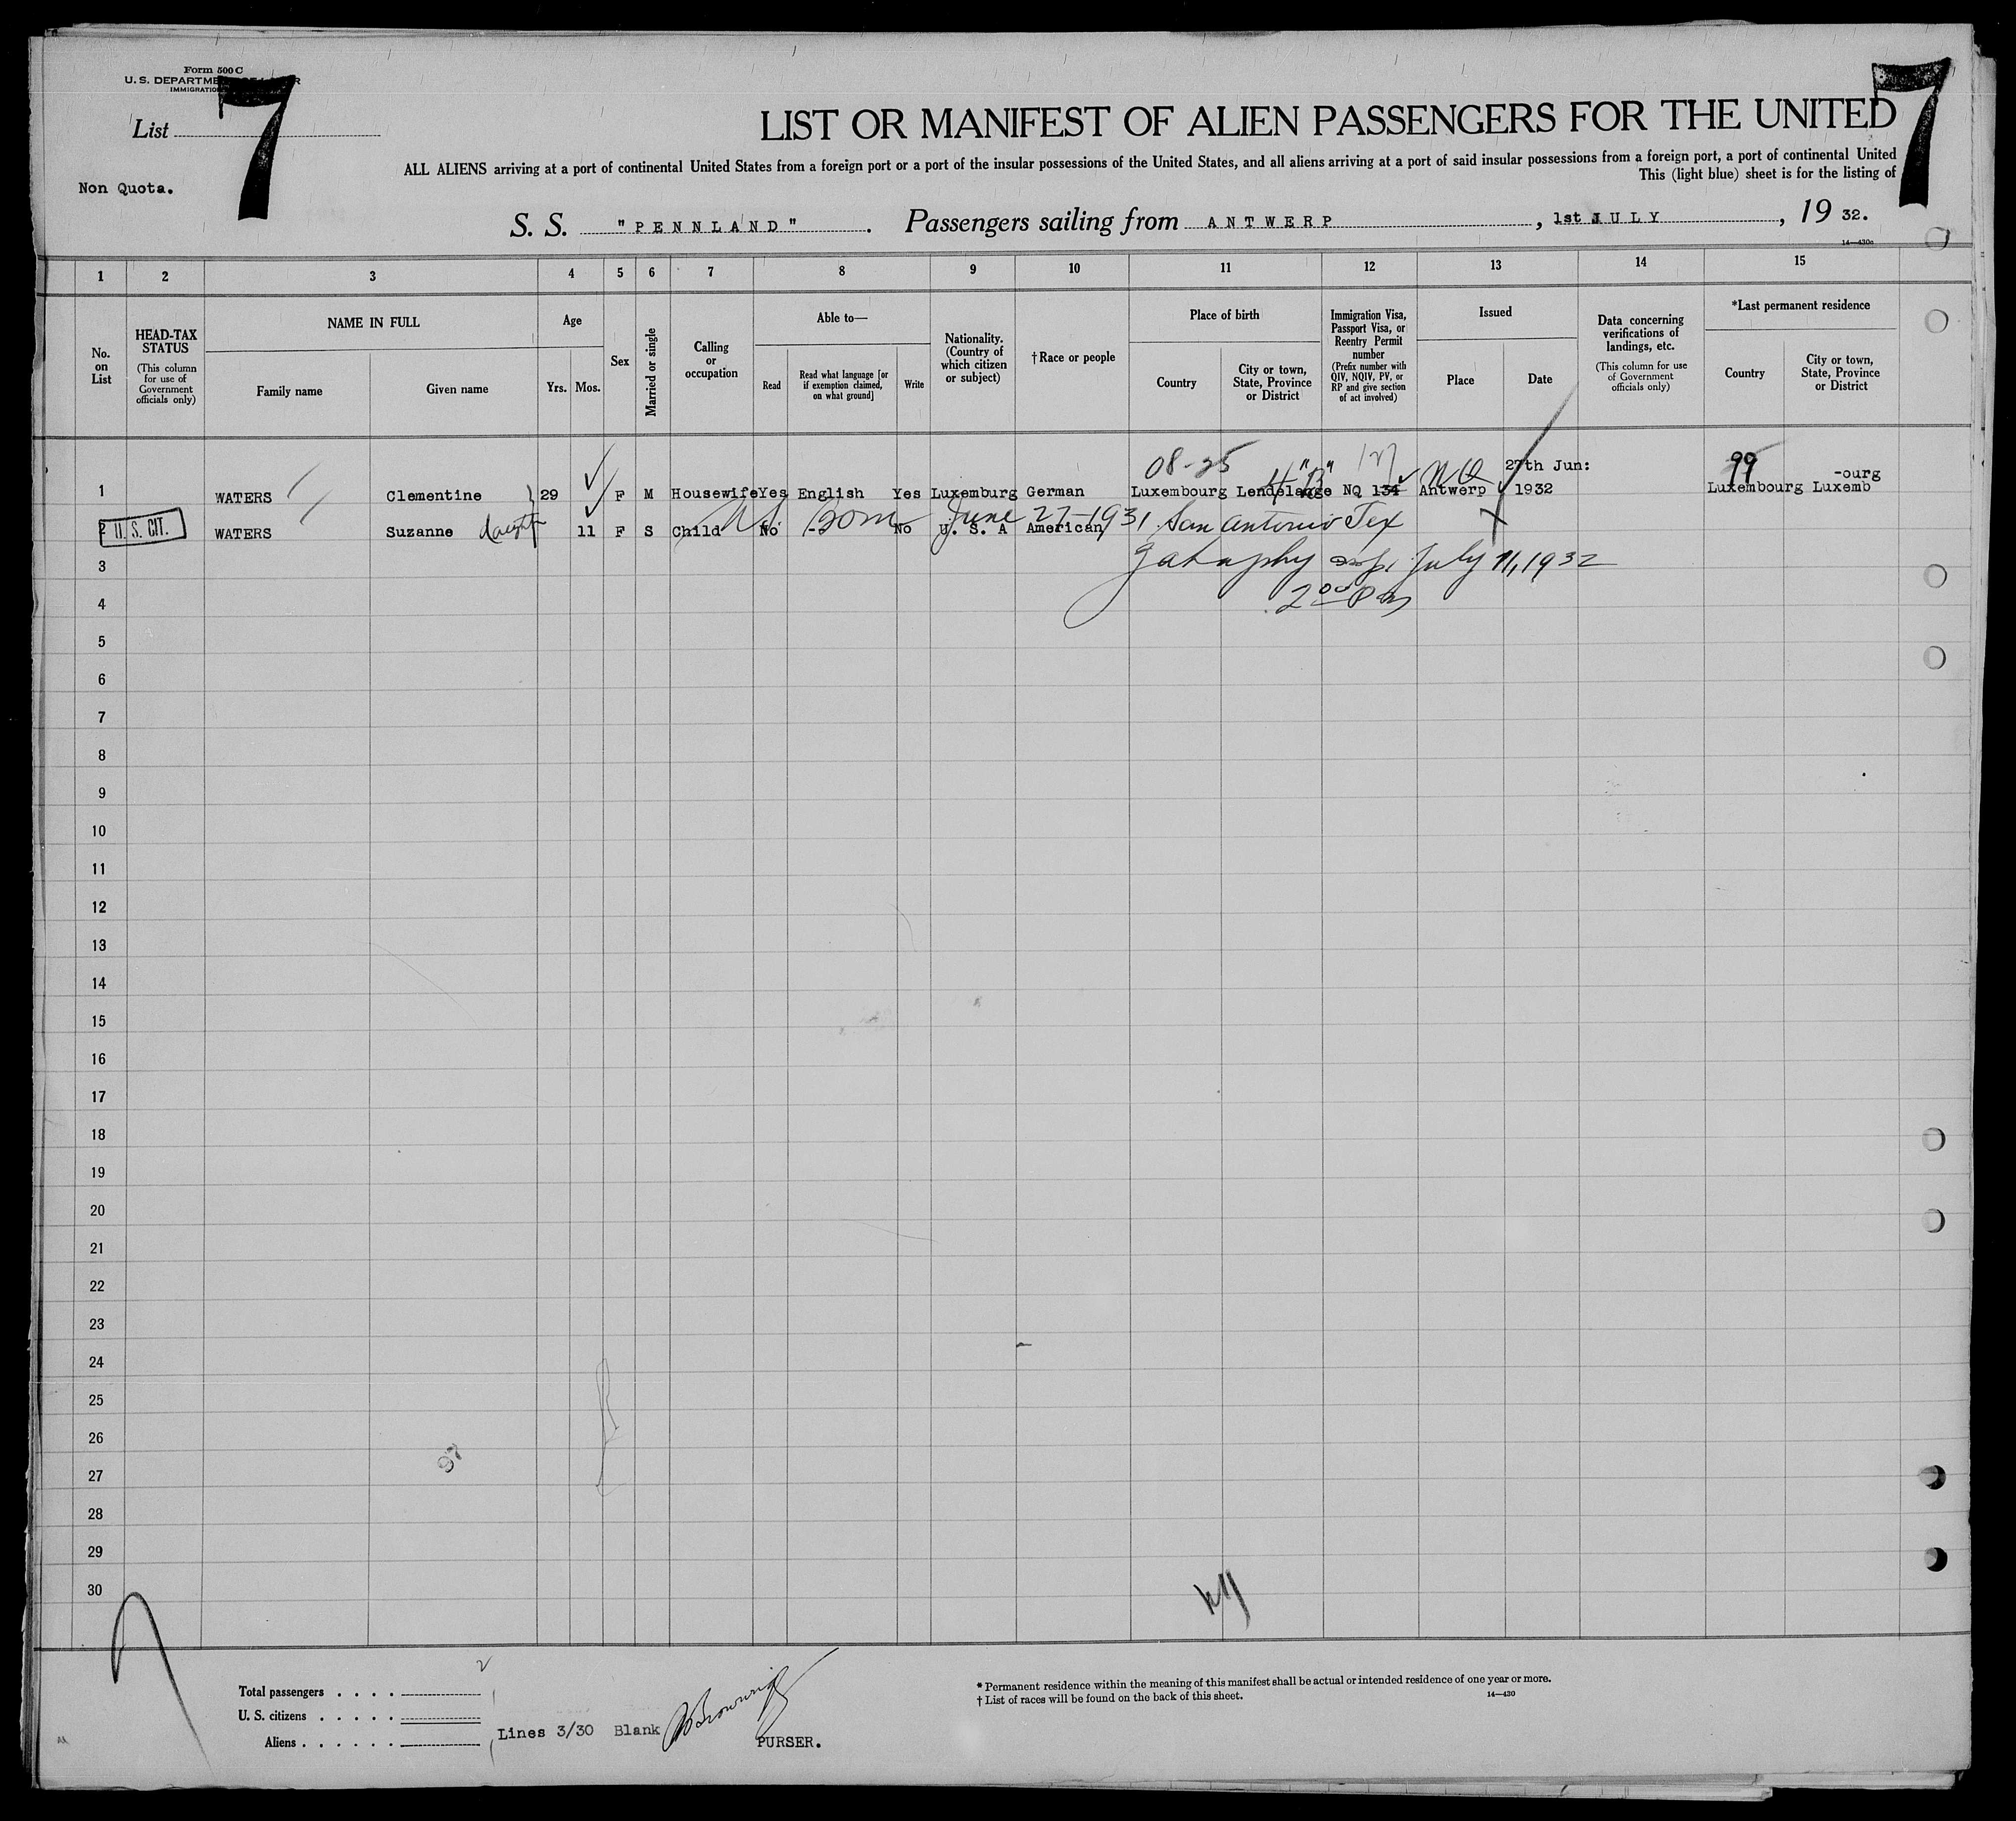 Form 500 C
U. S. DEPARTMENT OF LABOR
IMMIGRATION
List 7
7
LIST OR MANIFEST OF ALIEN PASSENGERS FOR THE UNITED
ALL ALIENS arriving at a port of continental United States from a foreign port or a port of the insular possessions of the United States, and all aliens arriving at a port of said insular possessions from a foreign port, a port of continental United
This (light blue) sheet is for the listing of
Non Quota.
S. S. "PENNLAND". Passengers sailing from ANTWERP, 1st JULY, 19 32.
14—430a
1 2 3 4 5 6 7 8 9 10 11 12 13 14 15
No. on List
HEAD-TAX STATUS (This column for use of Government officials only)
NAME IN FULL
Family name Given name
Age
Yrs. Mos.
Sex
Married or single
Calling or occupation
Able to—
Read
Read what language [or if exemption claimed, on what ground]
Write
Nationality. (Country of which citizen or subject)
†Race or people
Place of birth
Country
City or town, State, Province or District
Immigration Visa, Passport Visa, or Reentry Permit number (Prefix number with QIV, NQIV, PV, or RP and give section of act involved)
Issued
Place Date
Data concerning verifications of landings, etc. (This column for use of Government officials only)
*Last permanent residence
Country
City or town, State, Province or District
08-25 "4 B" 127 NQ 27th Jun: 99 -ourg
1 WATERS Clementine 29 F M Housewife Yes English Yes Luxemburg German Luxembourg Lendelange NQ 134 Antwerp 1932 Luxembourg Luxemb
2 U. S. CIT. WATERS Suzanne daught 11 F S Child No - No U. S. A American
US Born June 27-1931 San Antonio Tex
3 July 11, 1932
4 2 00 Pm
5
6
7
8
9
10
11
12
13
14
15
16
17
18
19
20
21
22
23
24
25
26
27
28
29
30
97
Total passengers . . . . 2
U. S. citizens . . . . .
Aliens . . . . . .
Lines 3/30 Blank
PURSER.
* Permanent residence within the meaning of this manifest shall be actual or intended residence of one year or more.
† List of races will be found on the back of this sheet.
14—430